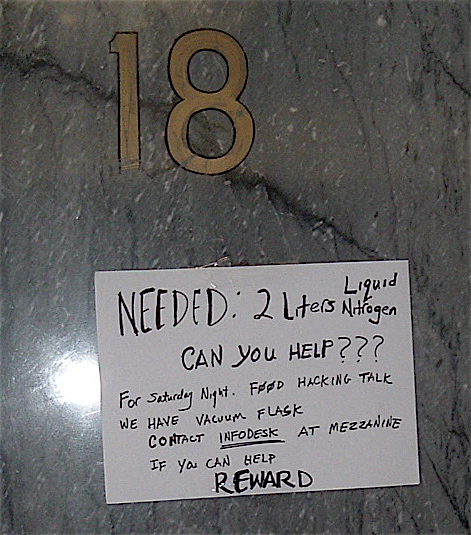 18
NEEDED: 2 Liters Liquid Nitrogen
CAN YOU HELP???
For Saturday Night. FØØD HACKING TALK
WE HAVE VACUUM FLASK
CONTACT INFODESK AT MEZZANINE
IF YOU CAN HELP
REWARD